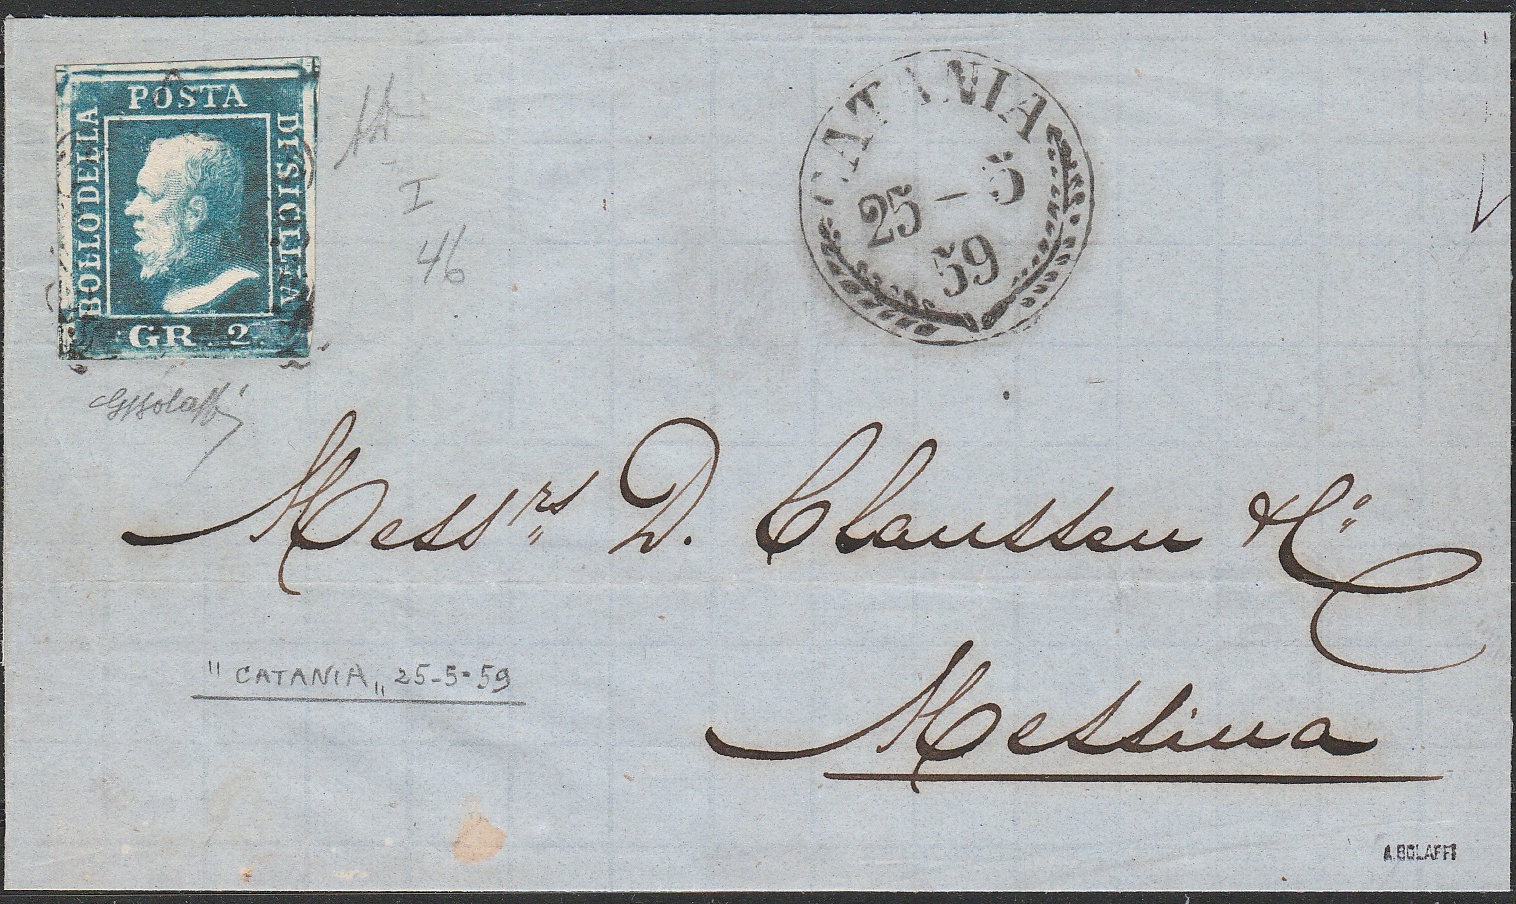 POSTA
BOLLO DELLA
DI SICILIA
GR. 2.
I
46
CATANIA
25 - 5
59
GBolaffi
Messrs D. Claussen & Co
"CATANIA" 25-5-59
Messina
A. BOLAFFI